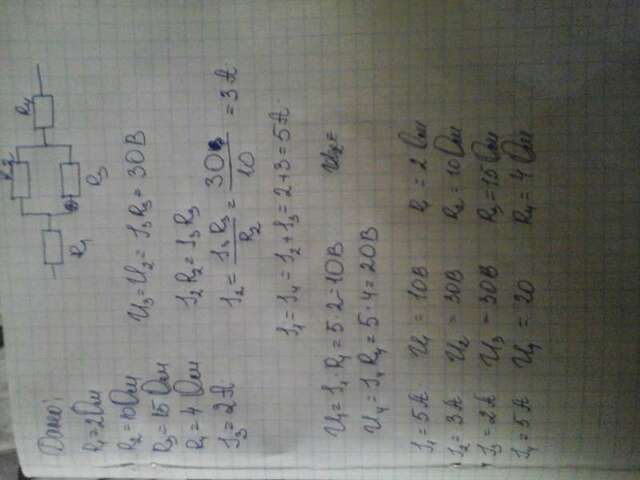 Дано:
R₁=2Ом
R₂=10Ом
R₃=15Ом
R₄=4Ом
I₃=2А
R₁
R₂
R₃
R₄
U₃=U₂=I₃R₃=30В
I₂R₂=I₃R₃
I₂=I₃R₃/R₂=30/10=3А
I₁=I₄=I₂+I₃=2+3=5А
U₁=I₁·R₁=5·2=10В
U₂=
U₄=I₄R₄=5·4=20В
I₁=5А U₁=10В R₁=2Ом
I₂=3А U₂=30В R₂=10Ом
I₃=2А U₃=30В R₃=15Ом
I₄=5А U₄=20 R₄=4Ом